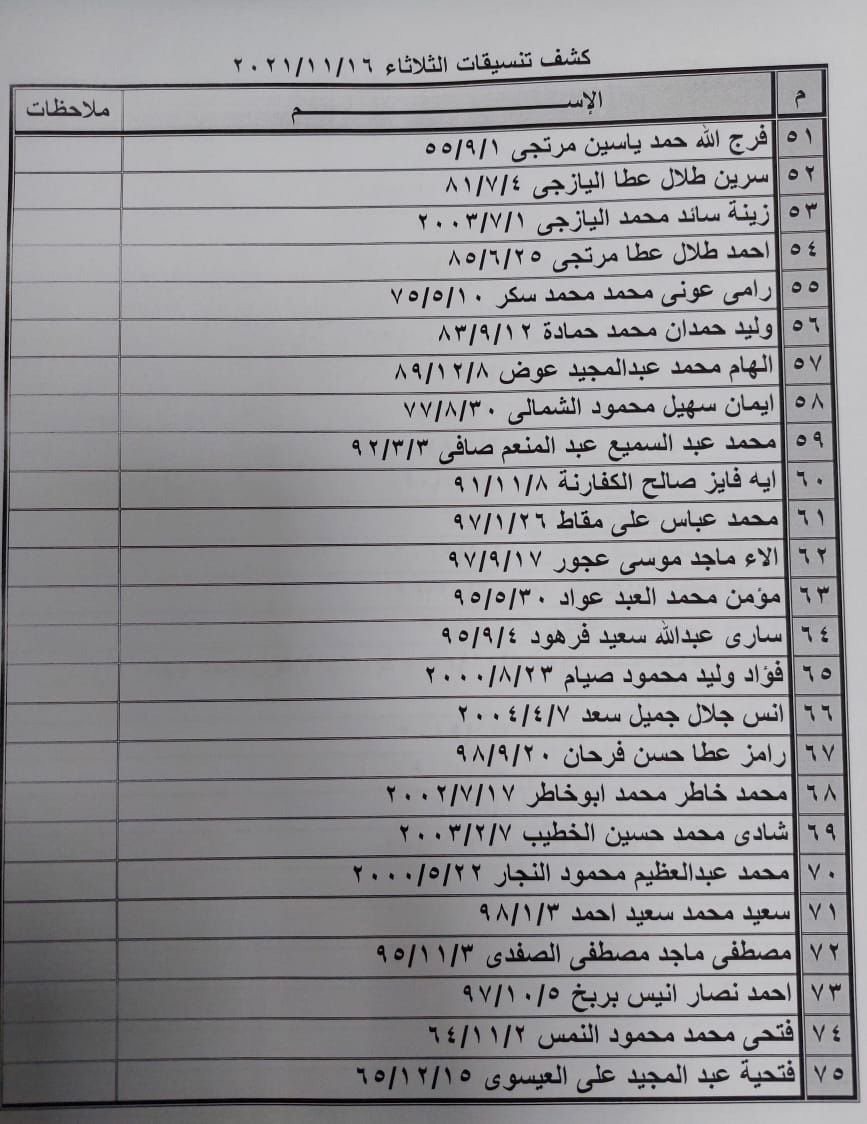 كشف تنسيقات الثلاثاء ٢٠٢١/١١/١٦
م الإســـــــــــــم ملاحظات
٥١ فرج الله حمد ياسين مرتجى ٥٥/٩/١
٥٢ سرين طلال عطا اليازجى ٨١/٧/٤
٥٣ زينة سائد محمد اليازجى ٢٠٠٣/٧/١
٥٤ احمد طلال عطا مرتجى ٨٥/٦/٢٥
٥٥ رامى عونى محمد محمد سكر ٧٥/٥/١٠
٥٦ وليد حمدان محمد حمادة ٨٣/٩/١٢
٥٧ الهام محمد عبدالمجيد عوض ٨٩/١٢/٨
٥٨ ايمان سهيل محمود الشمالى ٧٧/٨/٣٠
٥٩ محمد عبد السميع عبد المنعم صافى ٩٢/٣/٣
٦٠ ايه فايز صالح الكفارنة ٩١/١١/٨
٦١ محمد عباس على مقاط ٩٧/١/٢٦
٦٢ الاء ماجد موسى عجور ٩٧/٩/١٧
٦٣ مؤمن محمد العبد عواد ٩٥/٥/٣٠
٦٤ سارى عبدالله سعيد فرهود ٩٥/٩/٤
٦٥ فؤاد وليد محمود صيام ٢٠٠٠/٨/٢٣
٦٦ انس جلال جميل سعد ٢٠٠٤/٤/٧
٦٧ رامز عطا حسن فرحان ٩٨/٩/٢٠
٦٨ محمد خاطر محمد ابوخاطر ٢٠٠٢/٧/١٧
٦٩ شادى محمد حسين الخطيب ٢٠٠٣/٢/٧
٧٠ محمد عبدالعظيم محمود النجار ٢٠٠٠/٥/٢٢
٧١ سعيد محمد سعيد احمد ٩٨/١/٣
٧٢ مصطفى ماجد مصطفى الصفدى ٩٥/١١/٣
٧٣ احمد نصار انيس بربخ ٩٧/١٠/٥
٧٤ فتحى محمد محمود النمس ٦٤/١١/٢
٧٥ فتحية عبد المجيد على العيسوى ٦٥/١٢/١٥